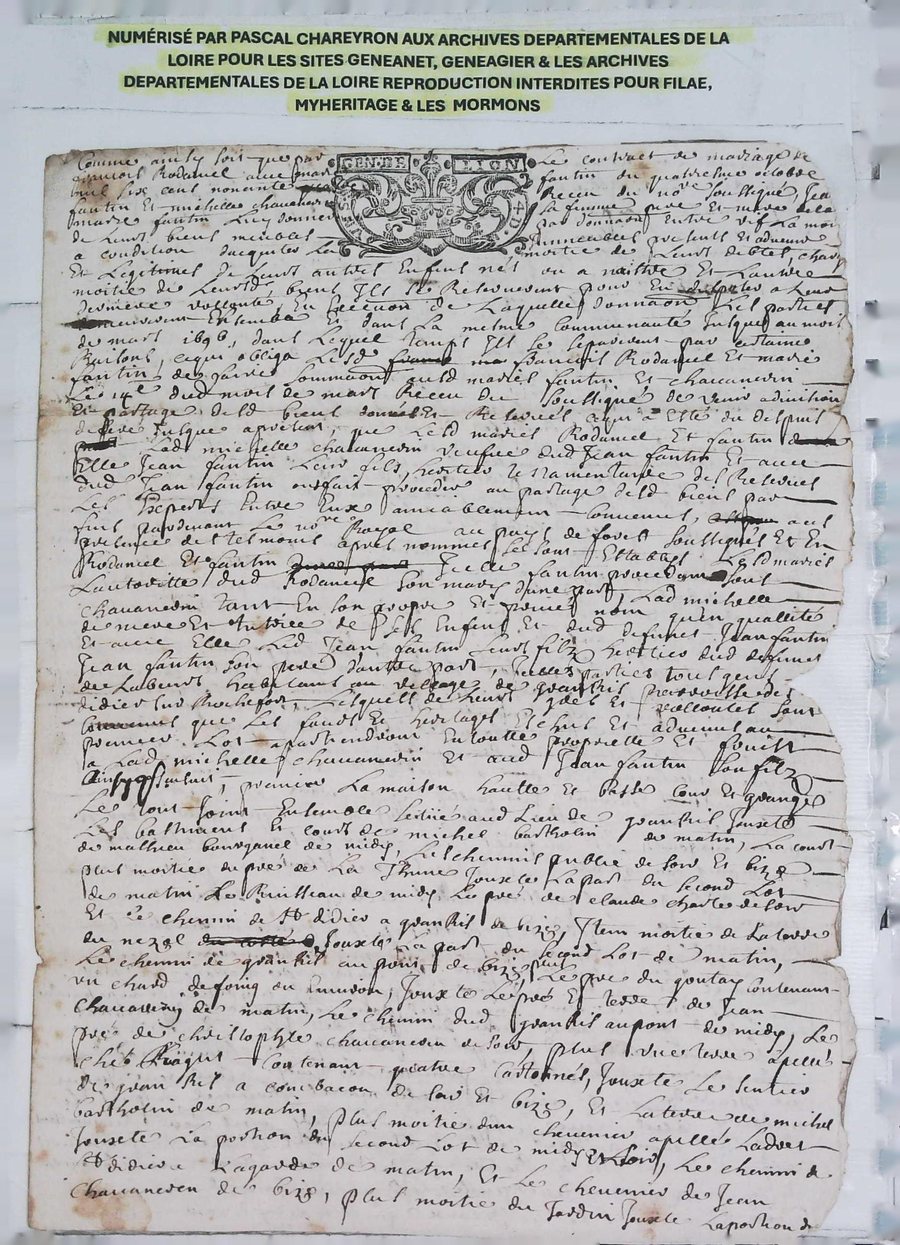 NUMÉRISÉ PAR PASCAL CHAREYRON AUX ARCHIVES DEPARTEMENTALES DE LA
LOIRE POUR LES SITES GENEANET, GENEAGIER & LES ARCHIVES
DEPARTEMENTALES DE LA LOIRE REPRODUCTION INTERDITES POUR FILAE,
MYHERITAGE & LES MORMONS
GEN. DE LION
Comme ainsy soit que par Le contract de mariage de
Rodamel avec fantin du quatriesme octobre
mil six cent nonante Receu du nore soubsigné, Jean
fantin Et michelle chauanerin sa femme pere et mere de la
marie fantin Luy donner par donnaon Entre vif La moi
de Leurs biens meubles Immeubles presents Et aduenir
a condition dacquiter La moitie de Leurs debtes, charg
Et Legitimes de Leurs autres Enfens nés ou a naistre Et Lautre
moitie de Leursds biens Ils se Reserverent pour En disposer a Leur
derniere vollonté, En Execuon de Laquelle donnaon Les parties
Ensemble Et dans La mesme Communauté Jusque au mois
de mars 1696, dans Lequel temps Ils se separerent par certaine
Raisons, ce qui obliga Lesd francois Rodamel Et marie
fantin de faire sommaon ausd mariés fantin Et chauanerin
Le 14e dud mois de mars Receu du soubsigné de venir a diuision
Et partage desd biens Reservés ce qui a Esté du despuis
differé Jusque a present, que Lesd mariés Rodamel Et fantin
Lad michelle chauanerin veufue dud Jean fantin Et avec
Elle Jean fantin Leur fils, heritier testamentaire des Reserves
dud Jean fantin ont fait proceder au partage desd biens par
Les Expers Entre Eux amiablement Conuenus,
Par devant Le nore Royal au pays de forest soubsigné Et En
presence des tesmoins apres nommes Se sont Establis Lesd mariés
Rodamel Et fantin Icelle fantin procedant soubs
Lauthorité dud Rodamel son mary dune part, Lad michelle
chauanerin tant En son propre Et privé nom qu'en quallité
de mere Et tutrice de ses Enfens Et dud deffunct Jean fantin
Et avec Elle Led Jean fantin Leur filz heritier dud deffunct
Jean fantin son pere dautre part, touttes parties tous gens
de Labeurs habitans au village de grandris parroisse de st
didier sur Rochefort, Lesquels de Leurs grés Et vollontés sont
Convenus que Les fonds Et heritages Escheus Et advenus au
premier Lot apartiendront En toutte proprieté Et fruits
a Lad michelle chauanerin Et aud Jean fantin son filz
Ainsy que sensuit, premier La maison haulte Et basse cour Et grange
Le tout Joint Ensemble scitué aud Lieu de grandris Jouxte
Les bastiment Et cour de michel bartholin de matin, La cour
de mathieu bourganel de midy, Les chemins publics de soir Et bize
plus moitié du pré de La Jouxte La part du second Lot
de matin Le Ruisseau de midy Le pré de claude charles de soir
Et Le chemin de St didier a grandris de bize, Item moitie de La terre
du Jouxte La part du second Lot de matin,
Le chemin de grandris au pont de bize, plus Le pré du goutay contenant
un chard de foing ou Environ, Jouxte Le pré Et terre de Jean
chauanerin de matin, Le chemin dud grandris au pont de midy, Le
pré de christophle chauanerin de soir, plus une terre apellée
contenant quatre cartonnes, Jouxte Le sentier
de grandris a de soir Et bize, Et La terre de michel
bartholin de matin, plus moitié dun chenevier apellé
Jouxte La portion du second Lot de midy Et soir, Le chemin de
St didier a Lagarde de matin, Et Le chenevier de Jean
chauanerin de bize, plus moitie du Jardin Jouxte La portion du